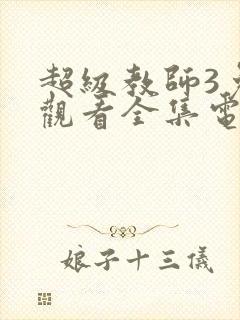 超級教師3
觀看全集電
娘子十三儀